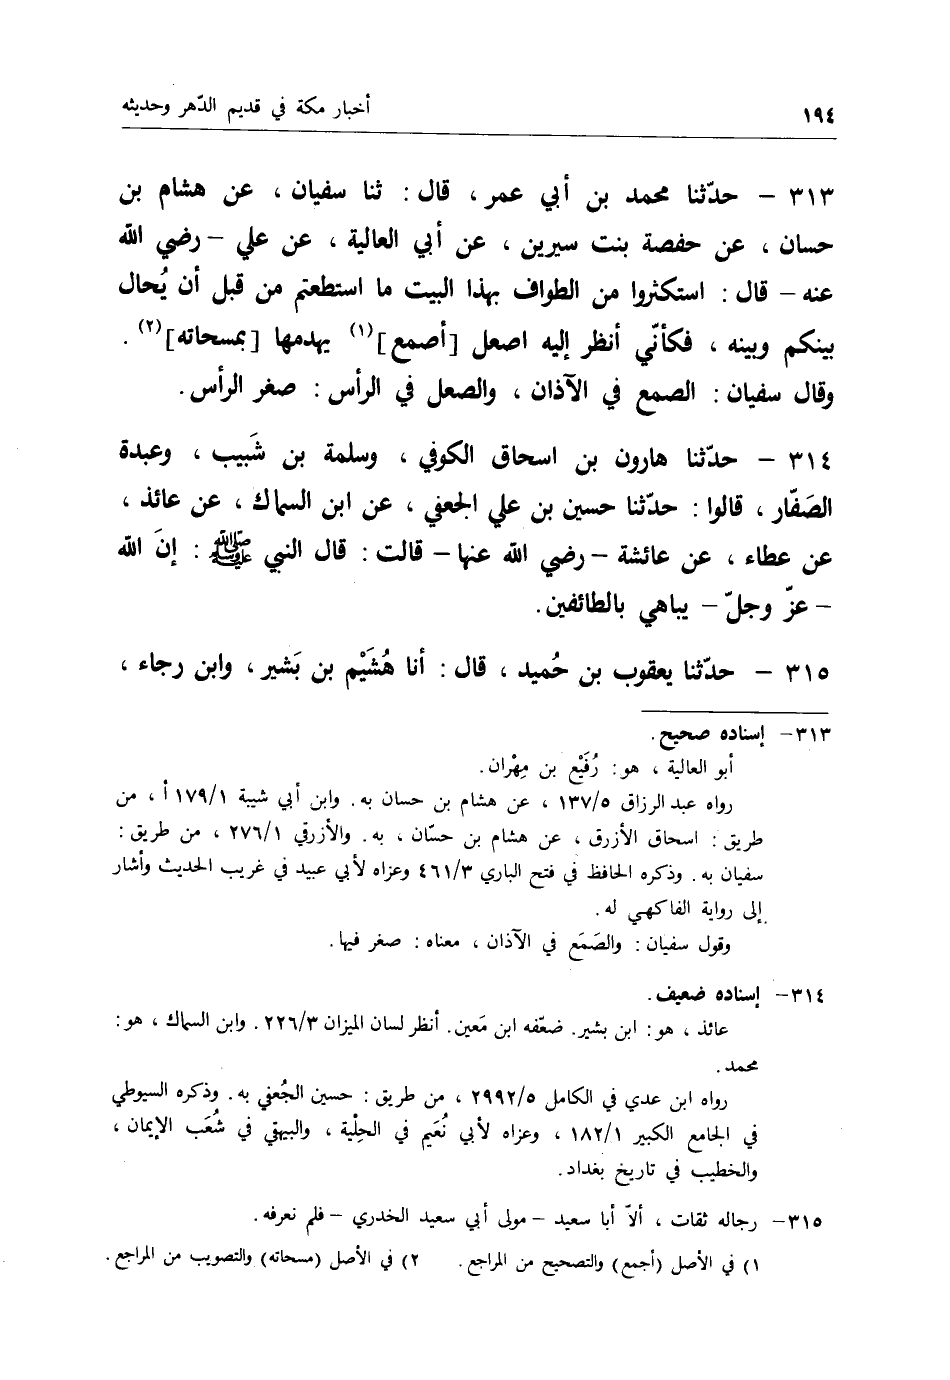 ١٩٤ أخبار مكة في قديم الدّهر وحديثه
٣١٣ – حدّثنا محمد بن أبي عمر ، قال : ثنا سفيان ، عن هشام بن
حسان ، عن حفصة بنت سيرين ، عن أبي العالية ، عن علي – رضي الله
عنه – قال : استكثروا من الطواف بهذا البيت ما استطعتم من قبل أن يُحال
بينكم وبينه ، فكأنّي أنظر إليه اصعل [أصمع](١) يهدمها [بمسحاته](٢) .
وقال سفيان : الصمع في الآذان ، والصعل في الرأس : صغر الرأس .
٣١٤ – حدّثنا هارون بن اسحاق الكوفي ، وسلمة بن شَبيب ، وعبدة
الصَفّار ، قالوا : حدّثنا حسين بن علي الجعفي ، عن ابن السماك ، عن عائذ ،
عن عطاء ، عن عائشة – رضي الله عنها – قالت : قال النبي ﷺ : إنَ الله
– عزّ وجلّ – يباهي بالطائفين .
٣١٥ – حدّثنا يعقوب بن حُميد ، قال : أنا هُشَيْم بن بَشير ، وابن رجاء ،
٣١٣– إسناده صحيح .
أبو العالية ، هو : رُفَيْع بن مِهْران .
رواه عبد الرزاق ١٣٧/٥ ، عن هشام بن حسان به . وابن أبي شيبة ١٧٩/١ أ ، من
طريق : اسحاق الأزرق ، عن هشام بن حسّان ، به . والأزرقي ٢٧٦/١ ، من طريق :
سفيان به . وذكره الحافظ في فتح الباري ٤٦١/٣ وعزاه لأبي عبيد في غريب الحديث وأشار
إلى رواية الفاكهي له .
وقول سفيان : والصَمَع في الآذان ، معناه : صغر فيها .
٣١٤– إسناده ضعيف .
عائذ ، هو : ابن بشير . ضعّفه ابن مَعين . أنظر لسان الميزان ٢٢٦/٣ . وابن السماك ، هو :
محمد .
رواه ابن عدي في الكامل ٢٩٩٢/٥ ، من طريق : حسين الجُعفي به . وذكره السيوطي
في الجامع الكبير ١٨٢/١ ، وعزاه لأبي نُعَيم في الحلْية ، والبيهقي في شُعَب الإيمان ،
والخطيب في تاريخ بغداد .
٣١٥– رجاله ثقات ، ألاّ أبا سعيد – مولى أبي سعيد الخدري – فلم نعرفه .
١) في الأصل (أجمع) والتصحيح من المراجع . ٢) في الأصل (مسحاته) والتصويب من المراجع .